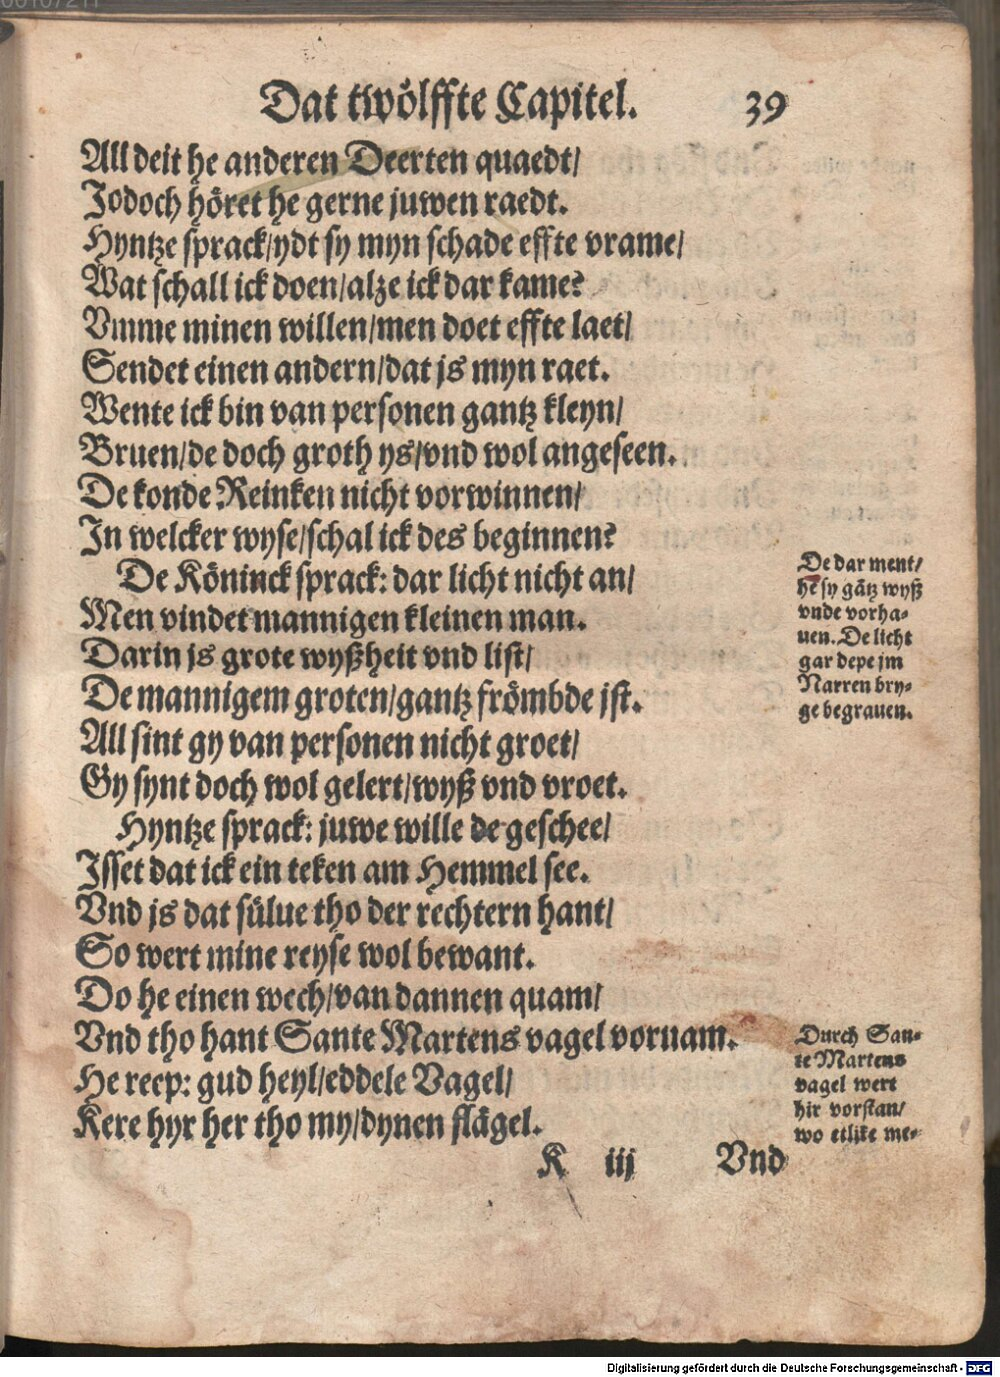 Dat twölffte Capitel. 39
All deit he anderen Deerten quaedt/
Jodoch höret he gerne juwen raedt.
Hyntze sprack/ydt sy myn schade effte vrame/
Wat schall ick doen/alze ick dar kame?
Vmme minen willen/men doet effte laet/
Sendet einen andern/dat js myn raet.
Wente ick bin van personen gantz kleyn/
Bruen/de doch groth ys/vnd wol angeseen.
De konde Reinken nicht vorwinnen/
In welcker wyse/schal ick des beginnen?
De Köninck sprack: dar licht nicht an/
Men vindet mannigen kleinen man.
Darin js grote wyßheit vnd list/
De mannigem groten/gantz frömbde jst.
All sint gy van personen nicht groet/
Gy synt doch wol gelert/wyß vnd vroet.
Hyntze sprack: juwe wille de geschee/
Jsset dat ick ein teken am Hemmel see.
Vnd js dat sülue tho der rechtern hant/
So wert mine reyse wol bewant.
Do he einen wech/van dannen quam/
Vnd tho hant Sante Martens vagel vornam.
He reep: gud heyl/eddele Vagel/
Kere hyr her tho my/dynen flägel.
K iij Vnd
De dar ment/
he sy gätz wyß
vnde vorha-
uen. De licht
gar depe jm
Narren bry-
ge begrauen.
Durch San-
te Martens
vagel wert
hir vorstan/
wo etlike me-
Digitalisierung gefördert durch die Deutsche Forschungsgemeinschaft - DFG